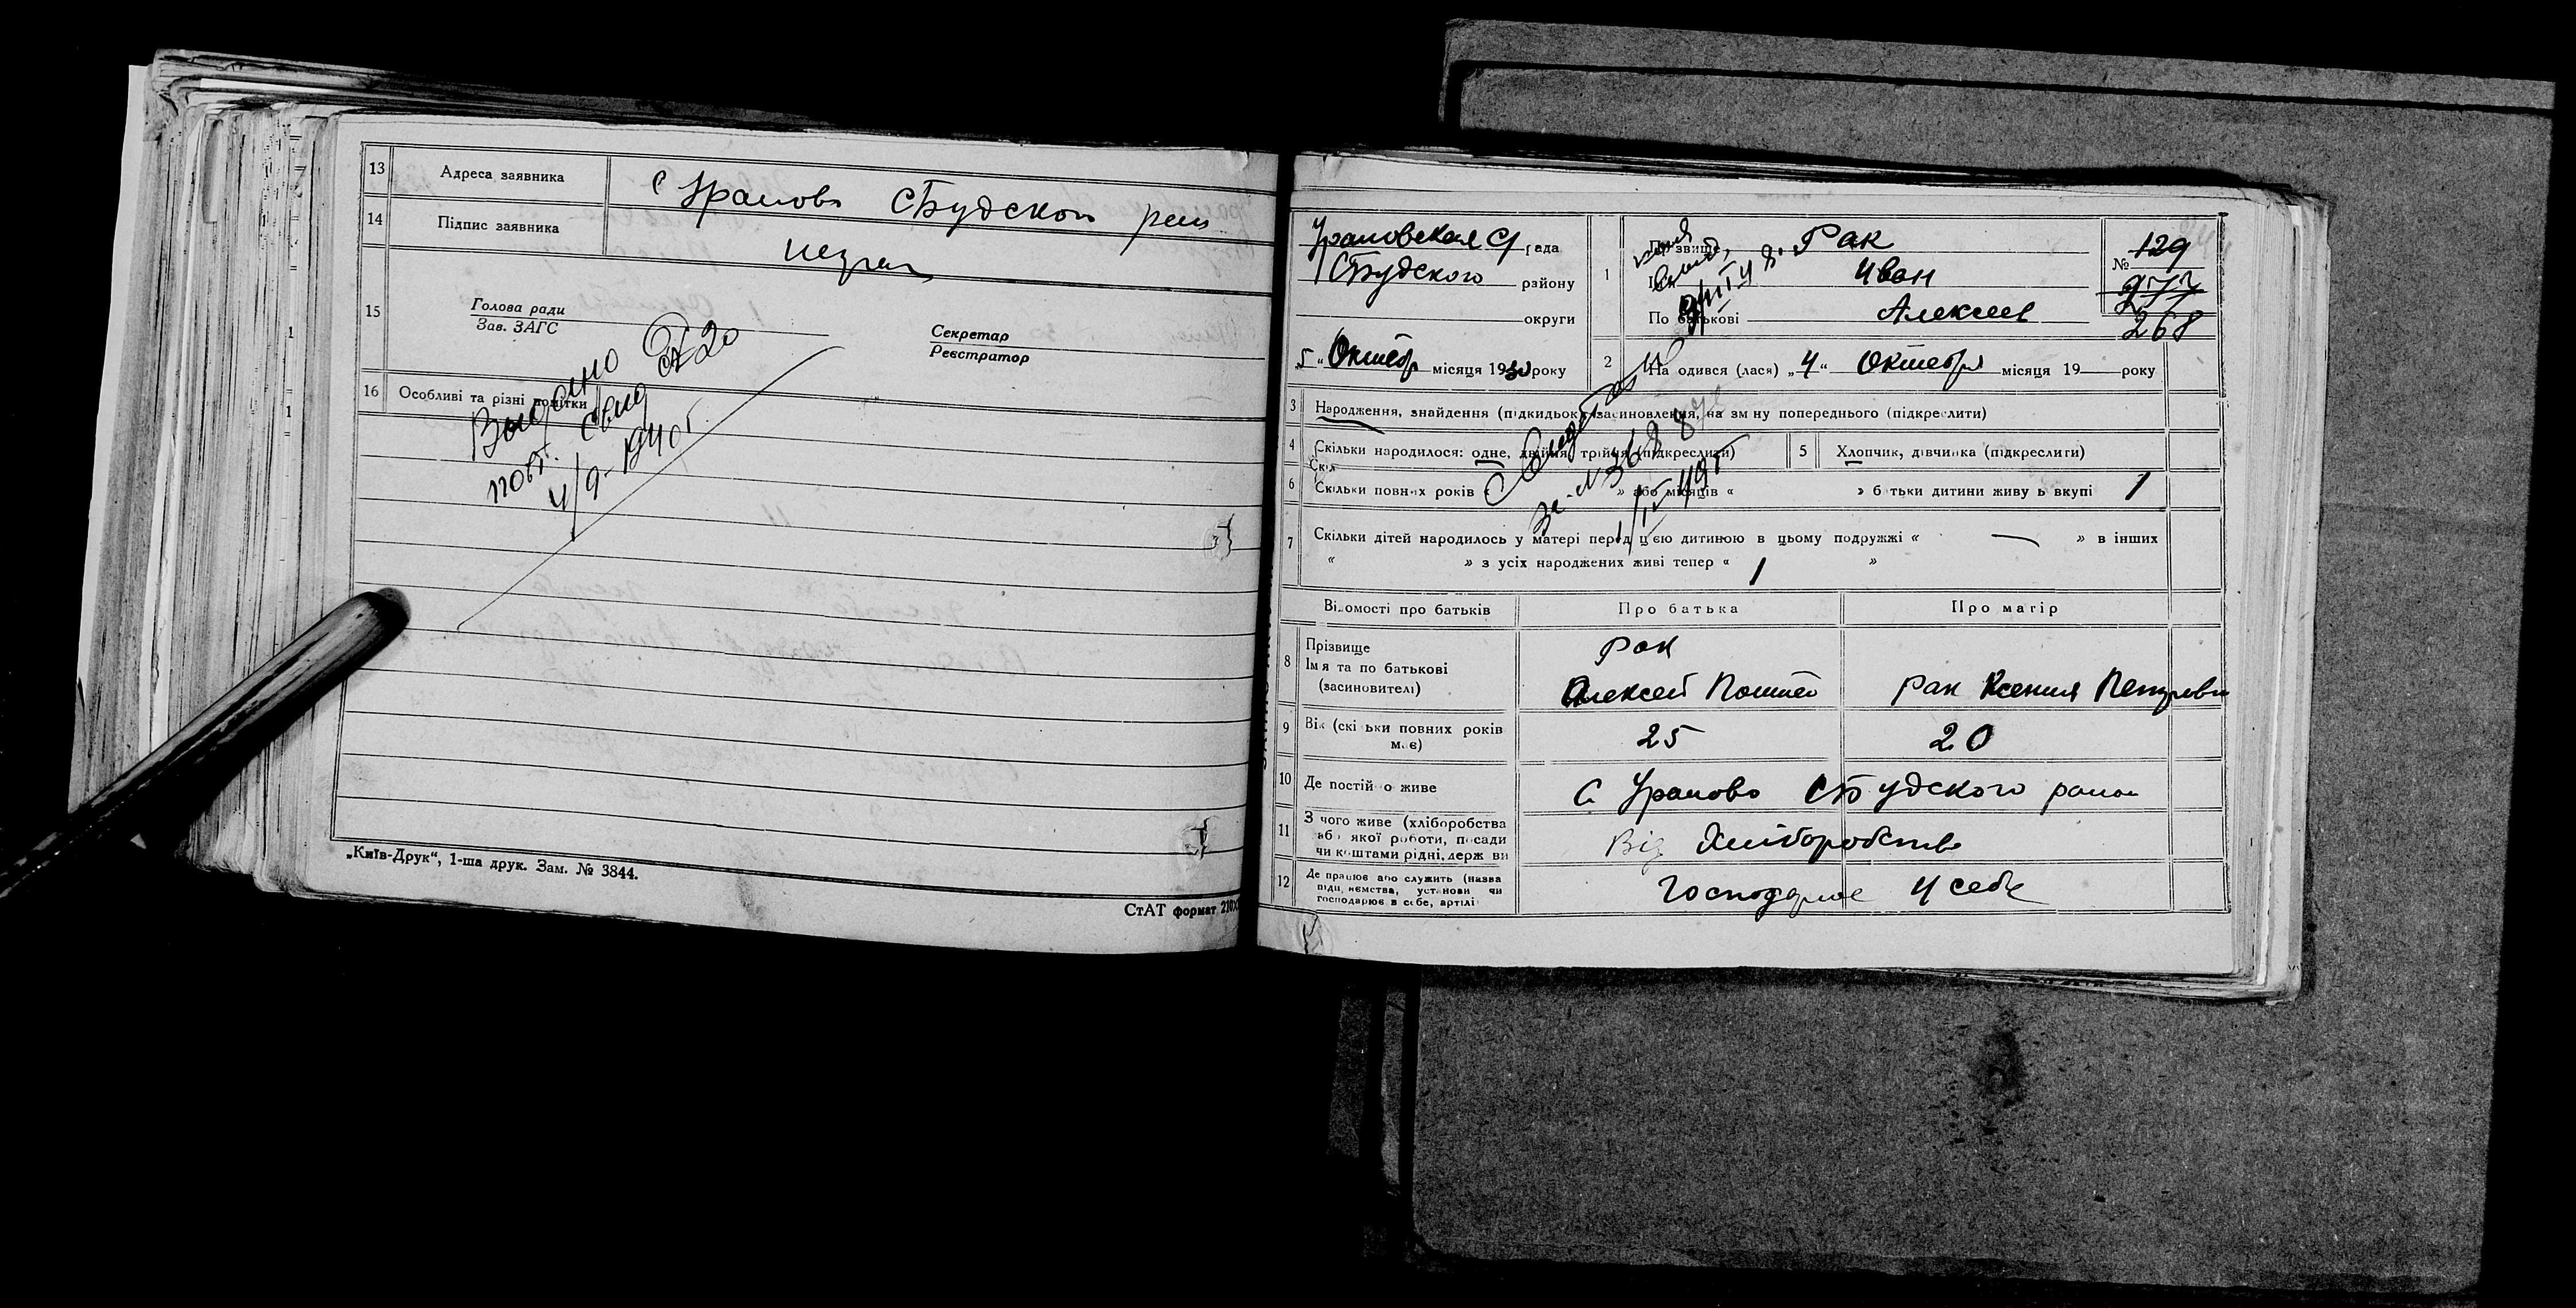 13 Адреса заявника с Уралово СБудского рай
14 Підпис заявника негр
15 Голова ради
Зав. ЗАГС
Секретар
Реєстратор
16 Особливі та різні помітки
Выдано
повт. свид
4/9-1940 г.
„Київ-Друк“, 1-ша друк. Зам. № 3844.
СтАТ формат 210X
Ураловская с/рада
СБудского району
округи
5 „Октябр місяця 1930 року
1 Прізвище Рак
Ім'я Иван
По батькові Алексеев
№ 129
277
268
2 Народився (лася) „4“ Октября місяця 19 року
3 Народження, знайдення (підкидьок) засиновлення, на зміну попереднього (підкреслити)
4 Скільки народилося: одне, двійня, трійня (підкреслити)
5 Хлопчик, дівчинка (підкреслити)
6 Скільки повних років « » або місяців « » батьки дитини живуть вкупі 1
7 Скільки дітей народилось у матері перед цією дитиною в цьому подружжі « — » в інших
« » з усіх народжених живі тепер « 1 »
Відомості про батьків Про батька Про матір
8 Прізвище
Ім'я та по батькові
(засновителі)
Рак
Алексей
Рак Ксения Петровн
9 Вік (скільки повних років
має)
25 20
10 Де постійно живе с. Уралово СБудского район
11 З чого живе (хліборобства
або якої роботи, посади
чи коштами рідні, держави
Від Хліборобства
12 Де працює або служить (назва
підприємства, установи чи
господарює в себе, артілі
Господарює у себе